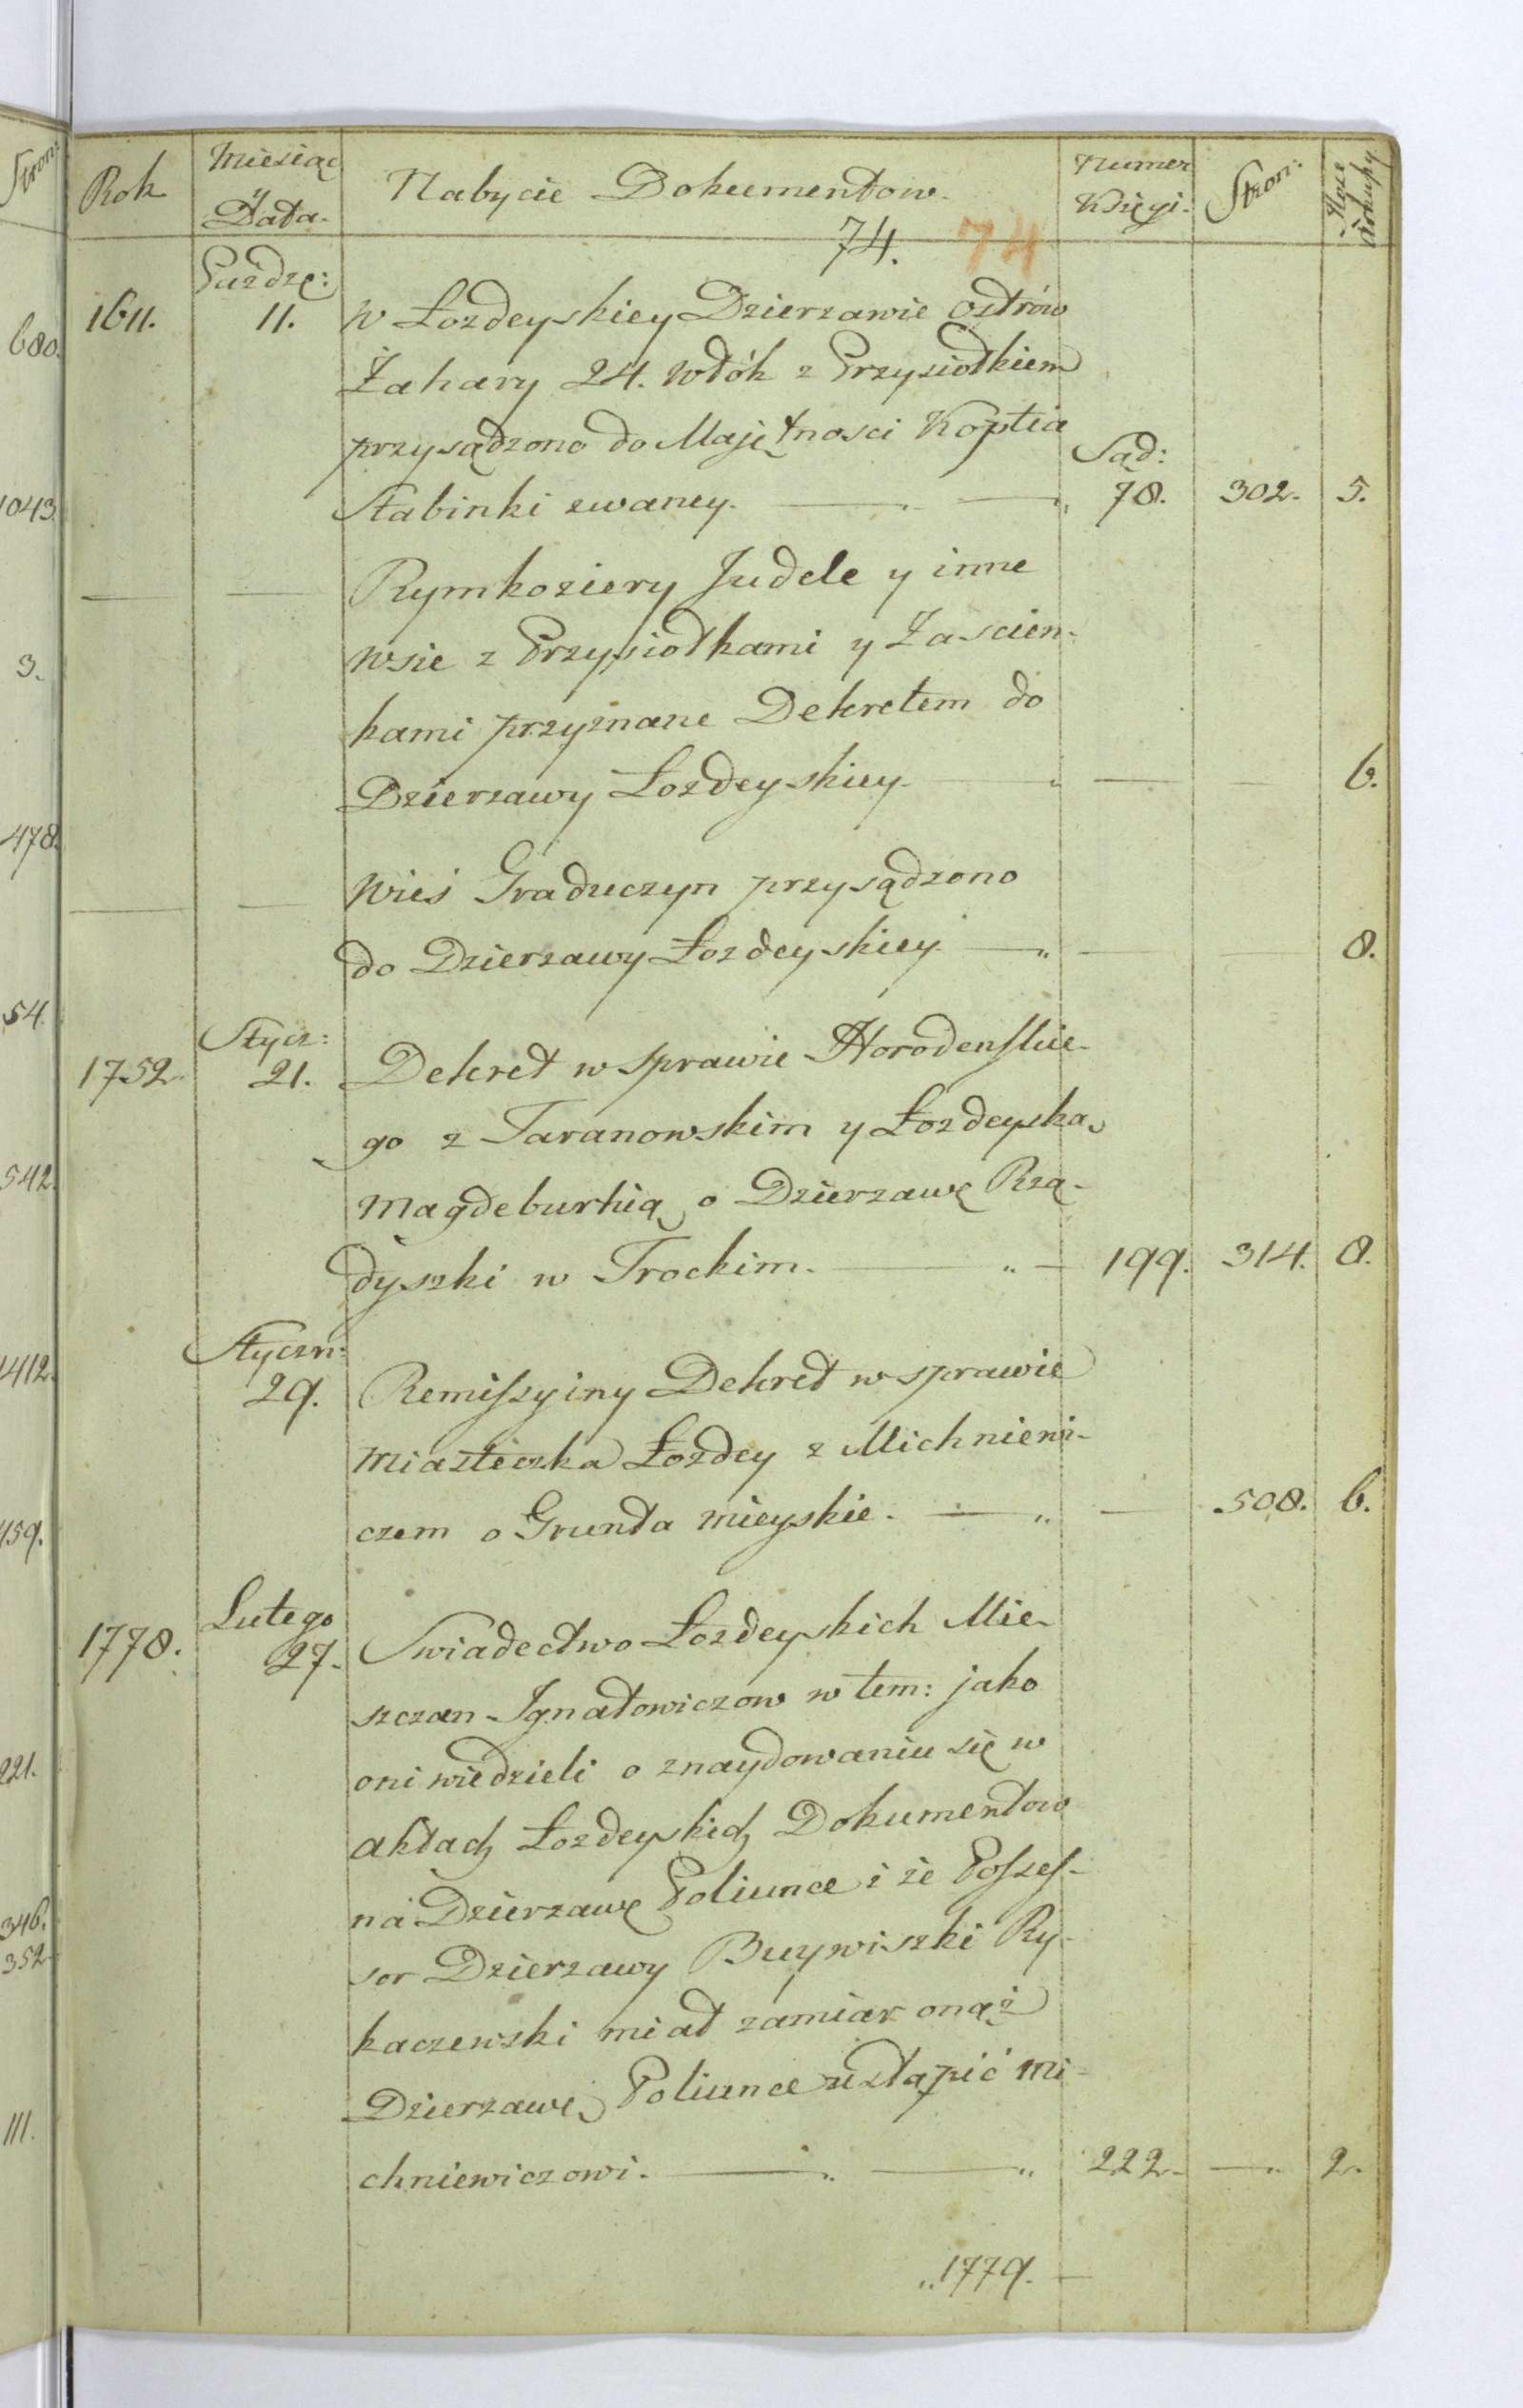 Stron:
680.
1043.
3.
478.
54.
542.
1412.
459.
221.
346.
352
111.
Rok
Miesiąc
y
Data.
Nabycie Dokumentow.
Numer
Księgi.
Stron:
74. 74
1611.
Pażdzę:
11.
W Łozdeyskiey Dzierzawie ostrów
Żahary 24. włók z Przysiołkiem
przysądzono do Majętnosci Koptia
Stabinki zwaney.
Sąd:
78. 302. 5.
Rymkoziery Judele y inne
wsie z Przysiołkami y Zascien-
kami przyznane Dekretem do
Dzierzawy Łozdeyskiey 6.
Wieś Graduczyn przysądzono
do Dzierzawy Łozdeyskiey 8.
1752
Stycz:
21.
Dekret w sprawie Horodenskie-
go z Taranowskim y Łozdeyską
Magdeburhią o Dzierzawę Rzą-
dyszki w Trockim. 199. 314. 8.
Styczn:
29.
Remissyiny Dekret w sprawie
Miasteczka Łozdey z Michniewi-
czem o Grunta mieyskie. 508. 6.
1778.
Lutego
27.
Swiadectwo Łozdeyskich Mie-
szczan Ignatowiczow w tem: jako
oni wiedzieli o znaydowaniu się w
aktach Łozdeyskich Dokumentow
na Dzierzawę Poliunce i że Posses-
sor Dzierzawy Buywiszki Ry-
kaczewski miał zamiar onąż
Dzierzawę Poliunce ustąpić Mi-
chniewiczowi. 222. 2.
1779.